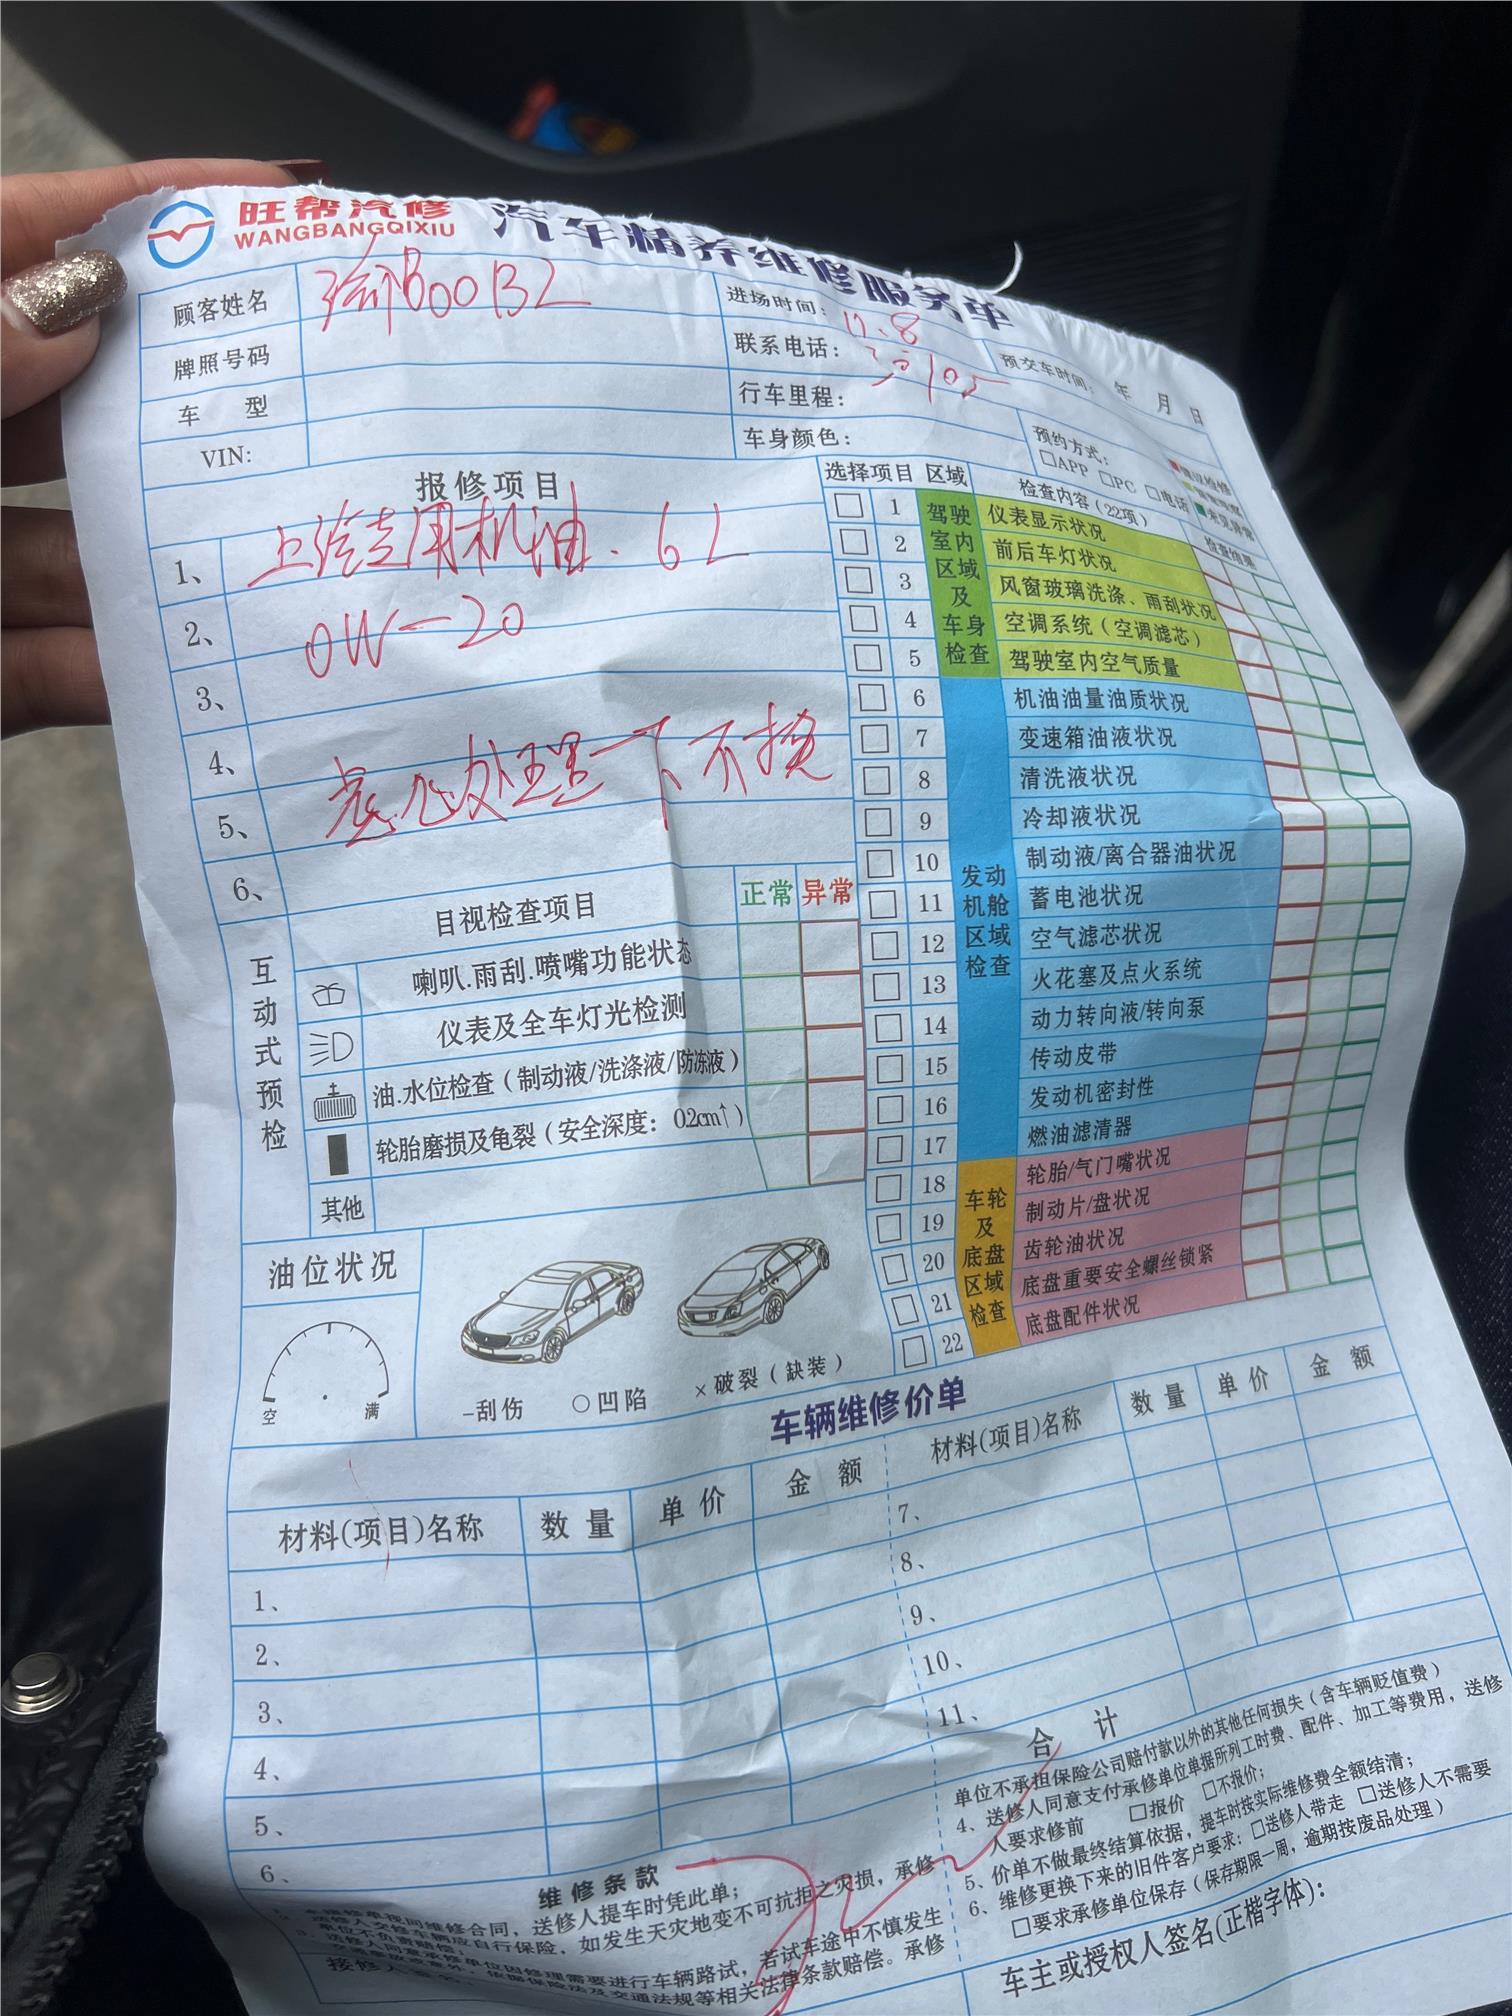 旺帮汽修 汽车精养维修服务单
WANGBANGQIXIU
顾客姓名
B00B2
进场时间: 12.8
预交车时间: 年 月 日
牌照号码
联系电话:
车 型
行车里程:
预约方式:
□APP □PC □电话
VIN:
车身颜色:
报修项目
1、上汽专用机油. 6L
2、0W-20
3、
4、
5、处理一下不换
6、
选择项目 区域 检查内容(22项) 检查结果
驾驶室内区域及车身检查
1 仪表显示状况
2 前后车灯状况
3 风窗玻璃洗涤、雨刮状况
4 空调系统(空调滤芯)
5 驾驶室内空气质量
发动机舱区域检查
6 机油油量油质状况
7 变速箱油液状况
8 清洗液状况
9 冷却液状况
10 制动液/离合器油状况
11 蓄电池状况
12 空气滤芯状况
13 火花塞及点火系统
14 动力转向液/转向泵
15 传动皮带
16 发动机密封性
17 燃油滤清器
车轮及底盘区域检查
18 轮胎/气门嘴状况
19 制动片/盘状况
20 齿轮油状况
21 底盘重要安全螺丝锁紧
22 底盘配件状况
互动式预检
目视检查项目 正常 异常
喇叭.雨刮.喷嘴功能状态
仪表及全车灯光检测
油.水位检查(制动液/洗涤液/防冻液)
轮胎磨损及龟裂(安全深度: 0.2cm↑)
其他
油位状况
空 满
-刮伤 ○凹陷 ×破裂(缺装)
车辆维修价单
材料(项目)名称 数量 单价 金额 材料(项目)名称 数量 单价 金额
1、 7、
2、 8、
3、 9、
4、 10、
5、 11、
6、 合 计
维修条款
送修人提车时凭此单;
如发生天灾地变不可抗拒之灾损,承修
单位不负责赔偿;
单位因修理需要进行车辆路试,若试车途中不慎发生
依据保险法及交通法规等相关法律条款赔偿。承修
单位不承担保险公司赔付款以外的其他任何损失(含车辆贬值费)
4、送修人同意支付承修单位单据所列工时费、配件、加工等费用,送修
人要求修前 □报价 □不报价;
5、价单不做最终结算依据,提车时按实际维修费全额结清;
6、维修更换下来的旧件客户要求:□送修人带走 □送修人不需要
□要求承修单位保存(保存期限一周,逾期按废品处理)
车主或授权人签名(正楷字体):